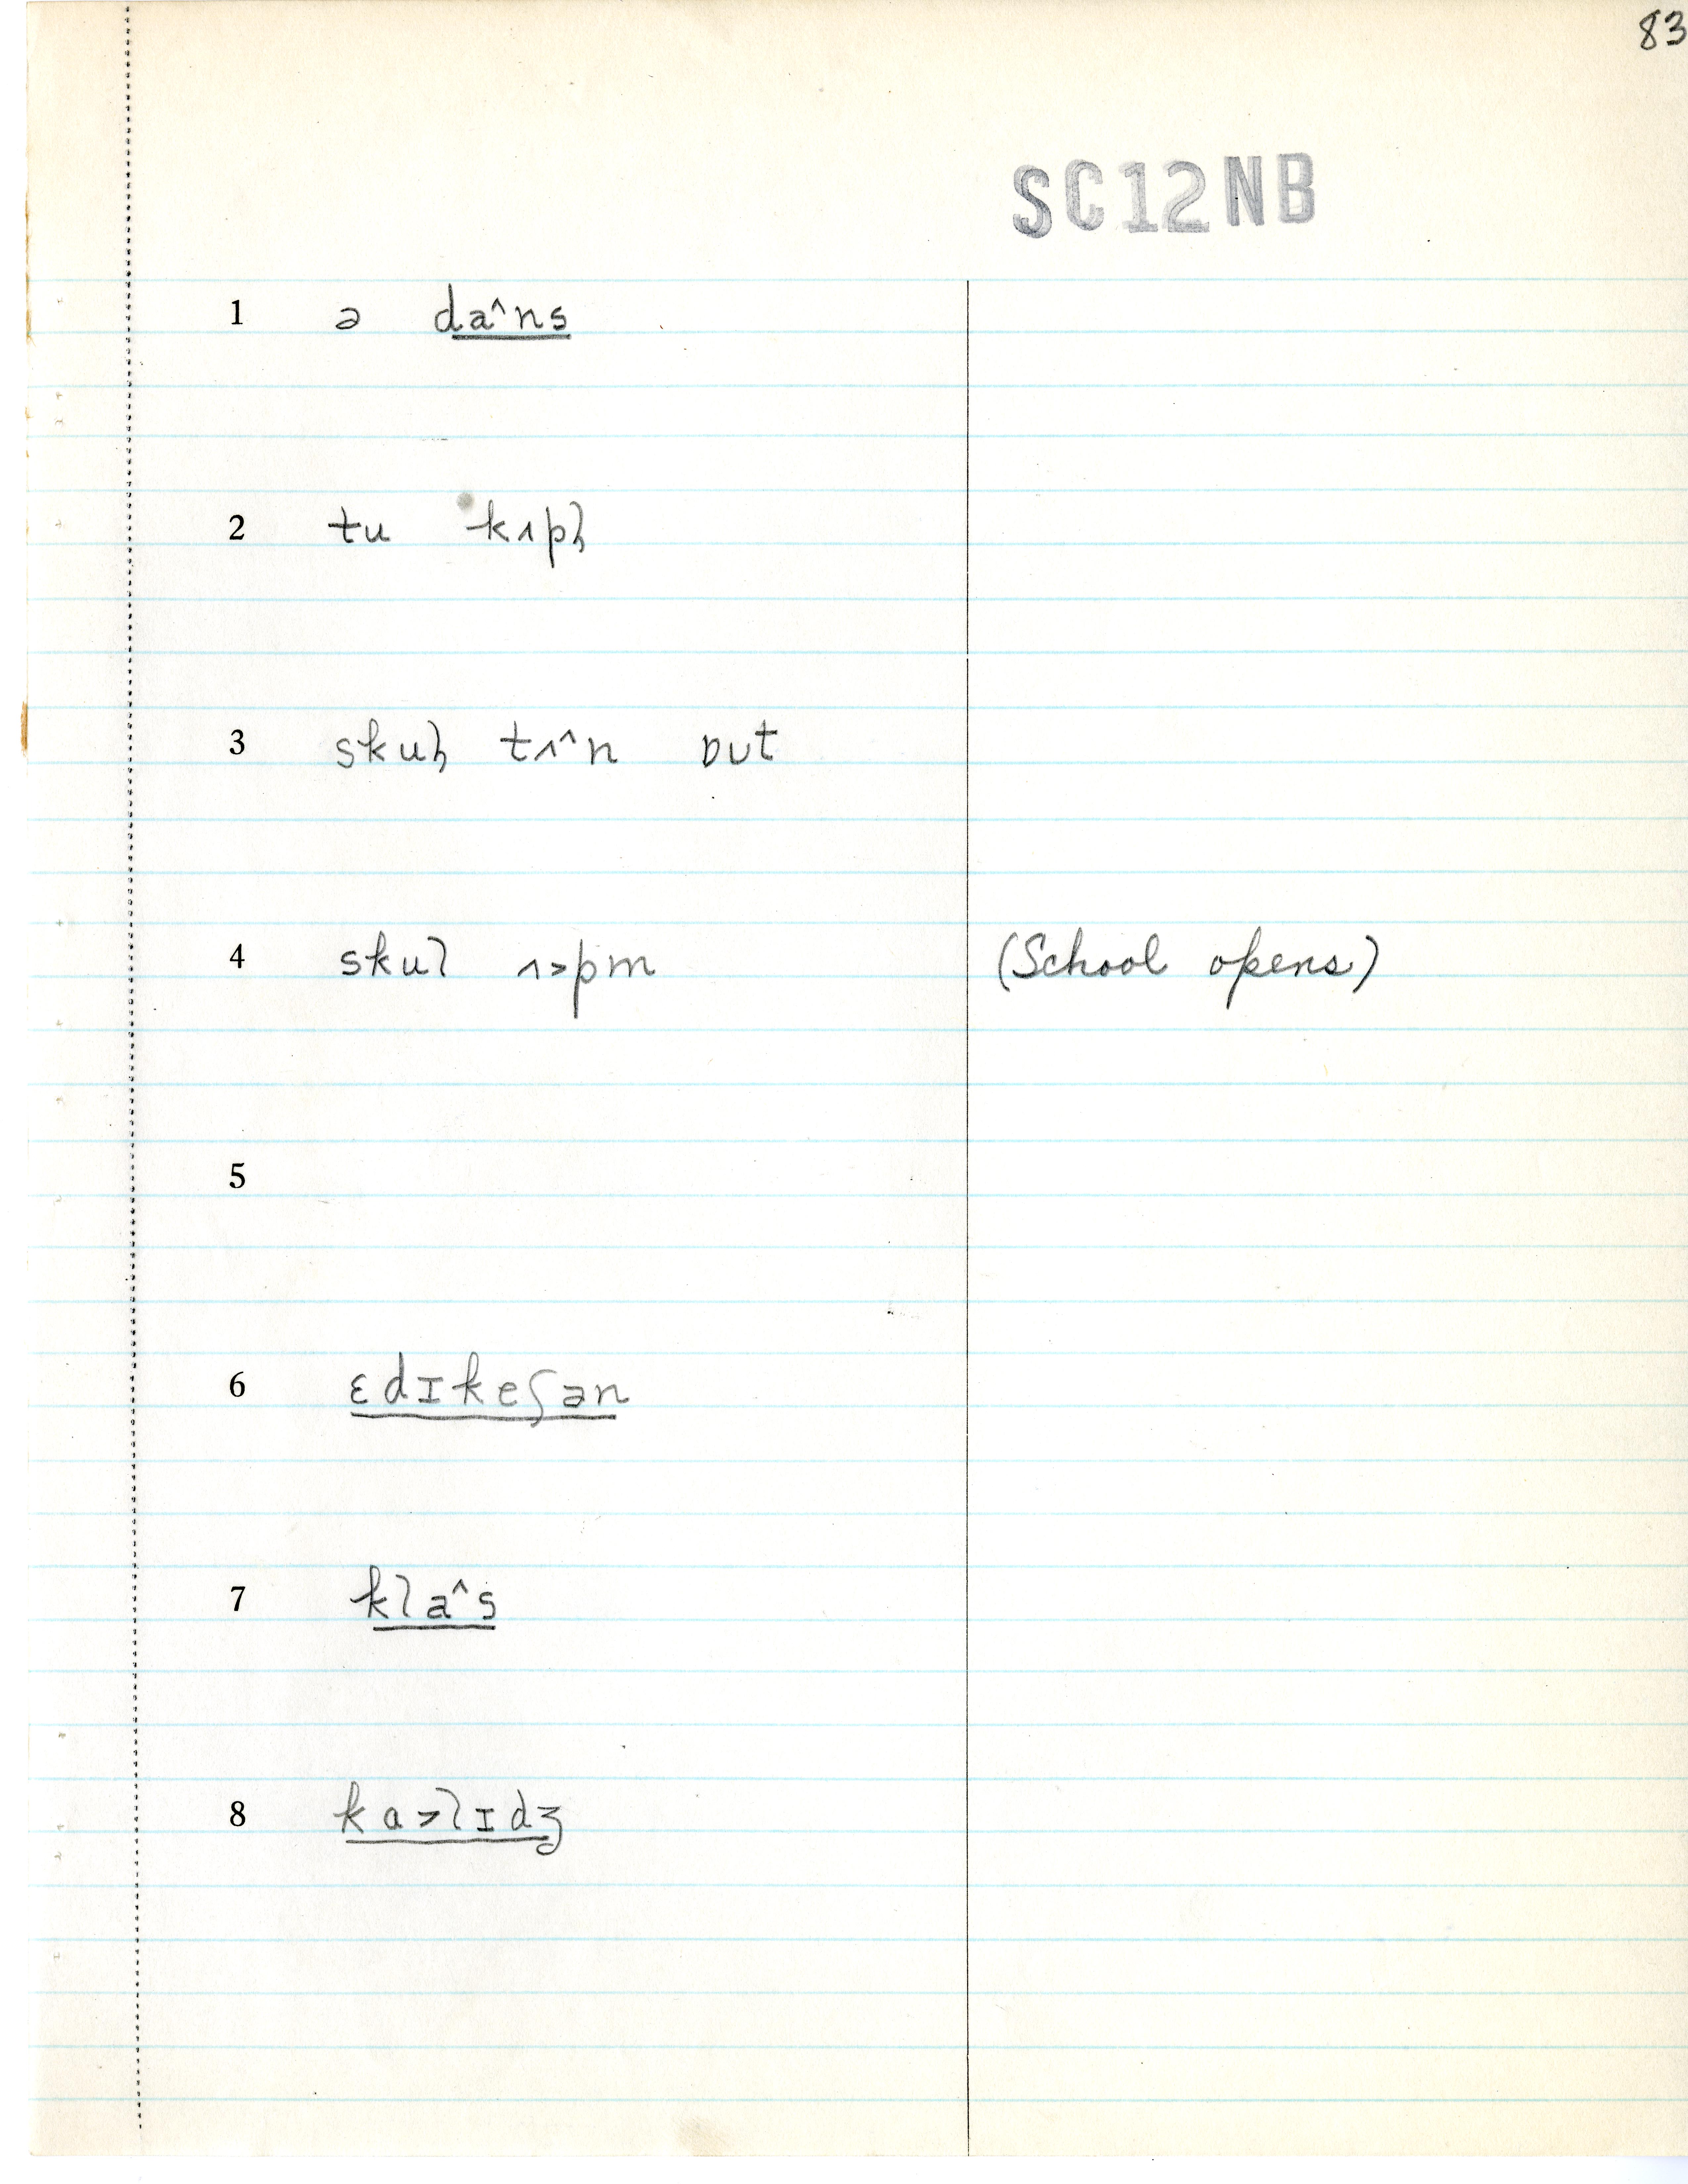 83
SC12NB
1 ə da^ns
2 tu kʌpl̩
3 skul̩ tʌ^n ɒut
4 skul ʌ>pm (School opens)
5
6 ɛdɪkeʃən
7 kla^s
8 kɑ>lɪdʒ